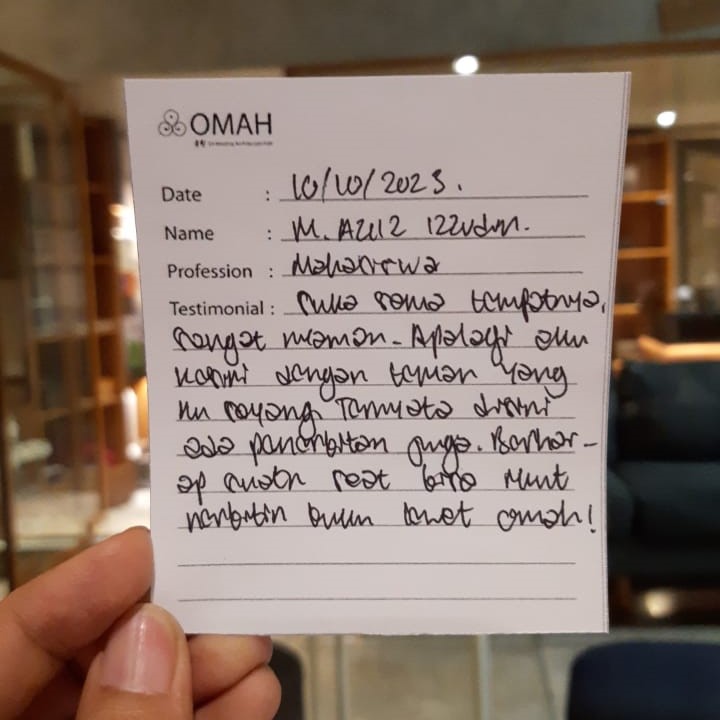 OMAH
Date : 10/10/2023.
Name : M. Aziz Izzudin.
Profession : Mahasiswa
Testimonial : Suka sama tempatnya,
Sangat nyaman. Apalagi aku
kesini dengan teman yang
ku sayang. Ternyata disini
ada penerbitan juga. Berhar-
ap suatu saat bisa ikut
nerbitin buku lewat omah!